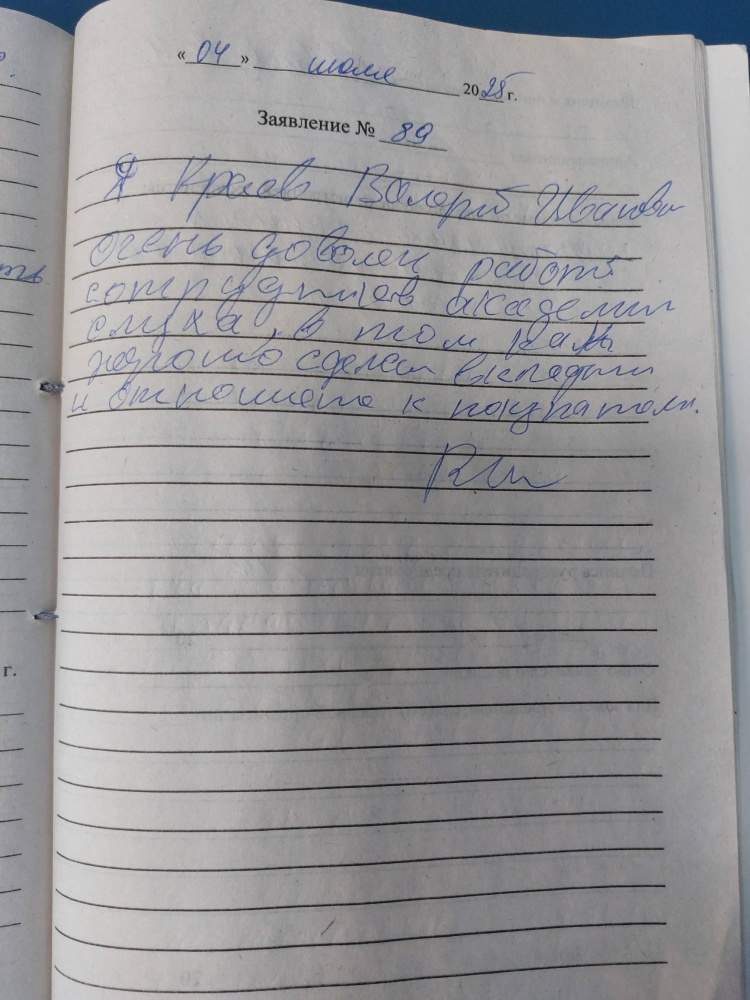 « 04 » июля 2025 г.
Заявление № 89
Я Краев Валерий Иванович
очень доволен работой
сотрудников академии
слуха, в том
хорошо сделали вкладыши
и отношение к покупателям.
г.